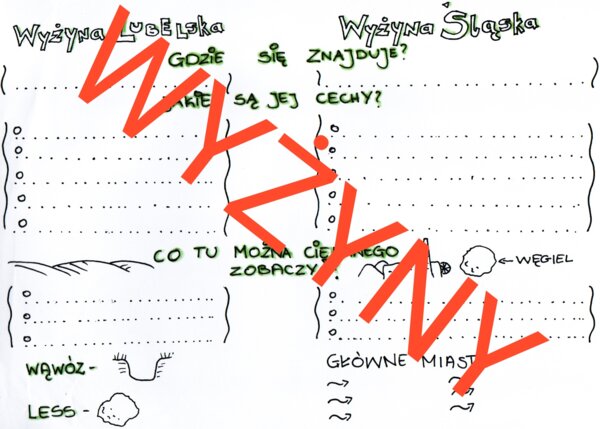 Wyżyna Lubelska
Wyżyna Śląska
GDZIE SIĘ ZNAJDUJE?
JAKIE SĄ JEJ CECHY?
WYŻYNY
CO TU MOŻNA
ZOBACZYĆ?
← WĘGIEL
WĄWÓZ -
LESS -
GŁÓWNE MIASTA